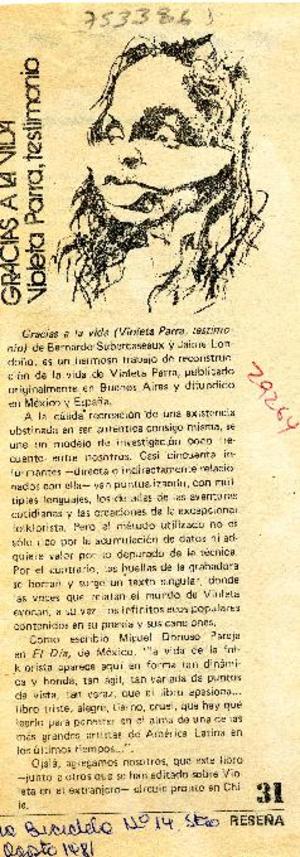 753386 1
GRACIAS A LA VIDA
Violeta Parra, testimonio
Gracias a la vida (Violeta Parra, testimo-
nio) de Bernardo Subercaseaux y Jaime Lon-
doño, es un hermoso trabajo de reconstruc-
ción de la vida de Violeta Parra, publicado
originalmente en Buenos Aires y difundido
en México y España.
A la cálida recreación de una existencia
obstinada en ser auténtica consigo misma, se
une un modelo de investigación poco fre-
cuente entre nosotros. Casi cincuenta in-
formantes —directa o indirectamente relacio-
nados con ella— van puntualizando, con múl-
tiples lenguajes, los detalles de las aventuras
cotidianas y las creaciones de la excepcional
folklorista. Pero el método utilizado no es
sólo rico por la acumulación de datos ni ad-
quiere valor por lo depurado de la técnica.
Por el contrario, las huellas de la grabadora
se borran y surge un texto singular, donde
las voces que relatan el mundo de Violeta
evocan, a su vez, los infinitos ecos populares
contenidos en su poesía y sus canciones.
Como escribió Miguel Donoso Pareja
en El Día, de México, "la vida de la fol-
klorista aparece aquí en forma tan dinámi-
ca y honda, tan ágil, tan variada de puntos
de vista, tan veraz, que el libro apasiona...
libro triste, alegre, tierno, cruel, que hay que
leerlo para penetrar en el alma de una de las
más grandes artistas de América Latina en
los últimos tiempos...".
Ojalá, agregamos nosotros, que este libro
—junto a otros que se han editado sobre Vio-
leta en el extranjero— circule pronto en Chi-
le.
29264
31
RESEÑA
La Bicicleta Nº 14, Stgo
Agosto 1981